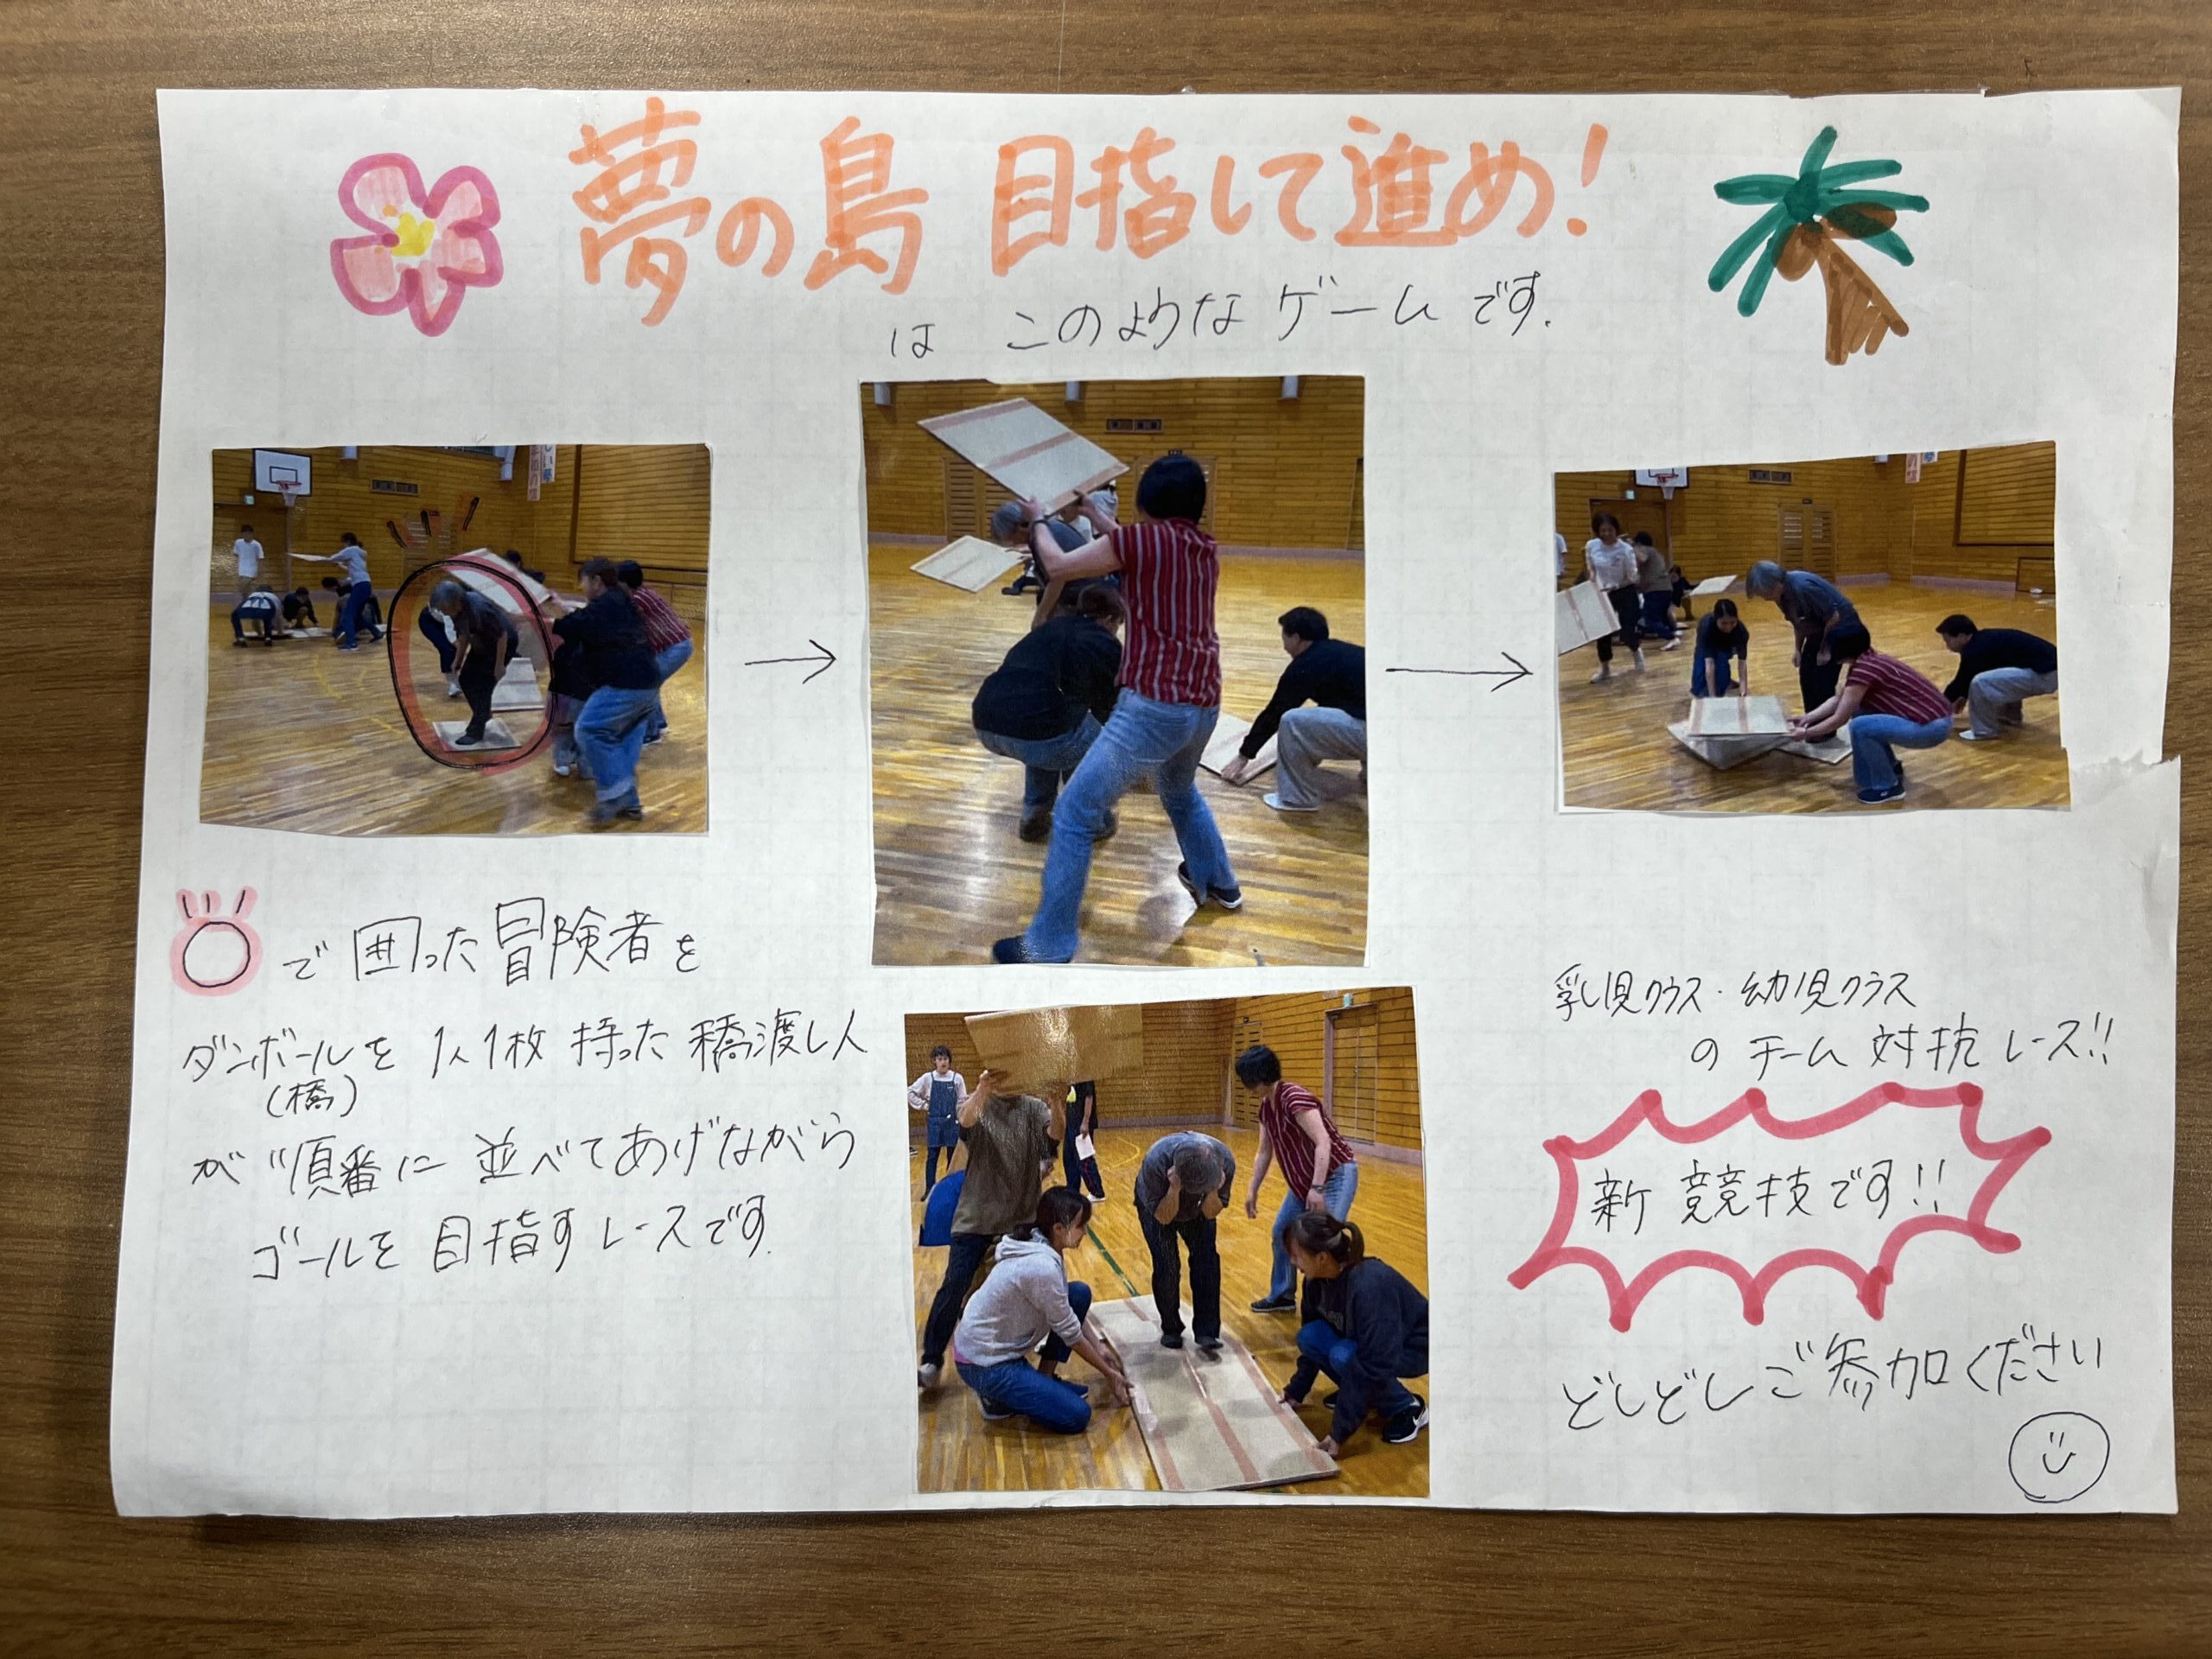 夢の島 目指して進め!
は このようなゲームです.
○で囲った冒険者を
ダンボールを 1人1枚 持った 橋渡し人
(橋)
が 順番に 並べてあげながら
ゴールを 目指す レースです.
乳児クラス・幼児クラス
の チーム 対抗 レース!!
新 競技です!!
どしどしご参加ください